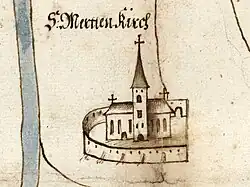 St. Mertten Kirch